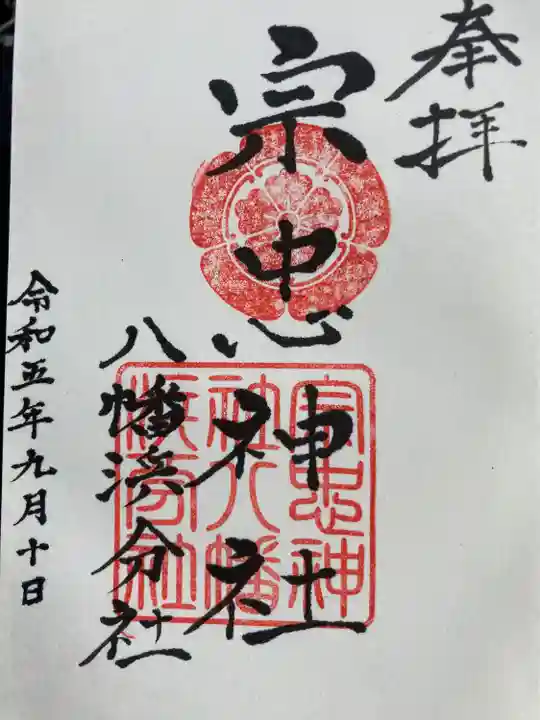 奉拝
宗忠神社
八幡浜分社
令和五年九月十日
宗忠神
社八幡
浜分社